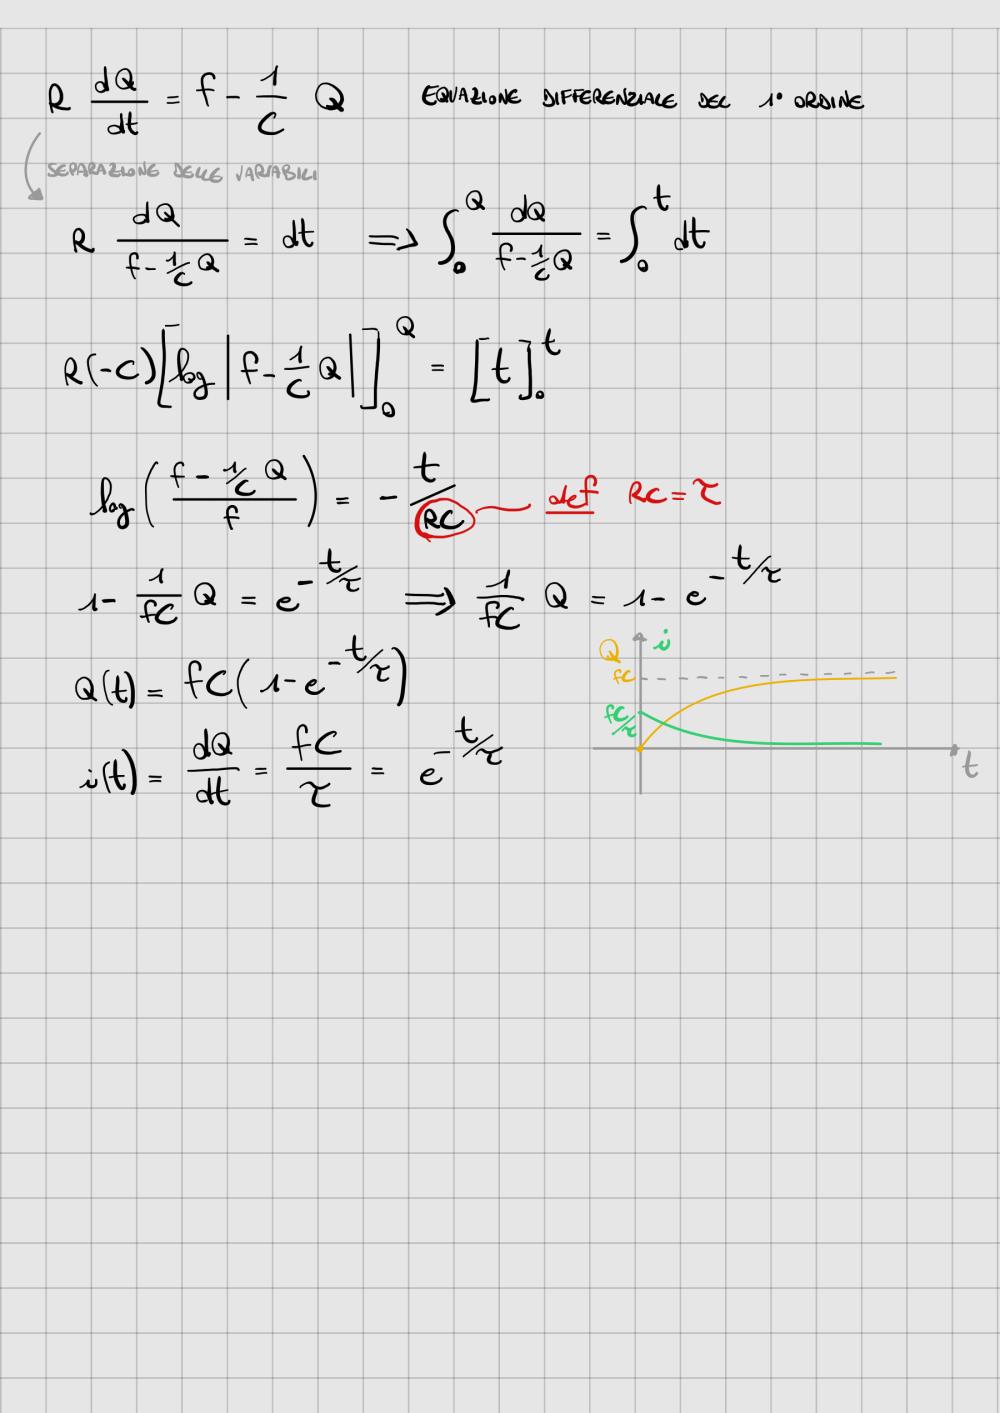 R dQ/dt = f - 1/C Q   EQUAZIONE DIFFERENZIALE DEL 1° ORDINE
SEPARAZIONE DELLE VARIABILI
R dQ/(f - 1/C Q) = dt ⟹ ∫₀^Q dQ/(f - 1/C Q) = ∫₀^t dt
R(-C)[log|f - 1/C Q|]₀^Q = [t]₀^t
log((f - 1/C Q)/f) = - t/RC   def RC = τ
1 - 1/fC Q = e^(-t/τ) ⟹ 1/fC Q = 1 - e^(-t/τ)
Q(t) = fC(1 - e^(-t/τ))
i(t) = dQ/dt = fC/τ = e^(-t/τ)
Q i
fC
fC/τ
t